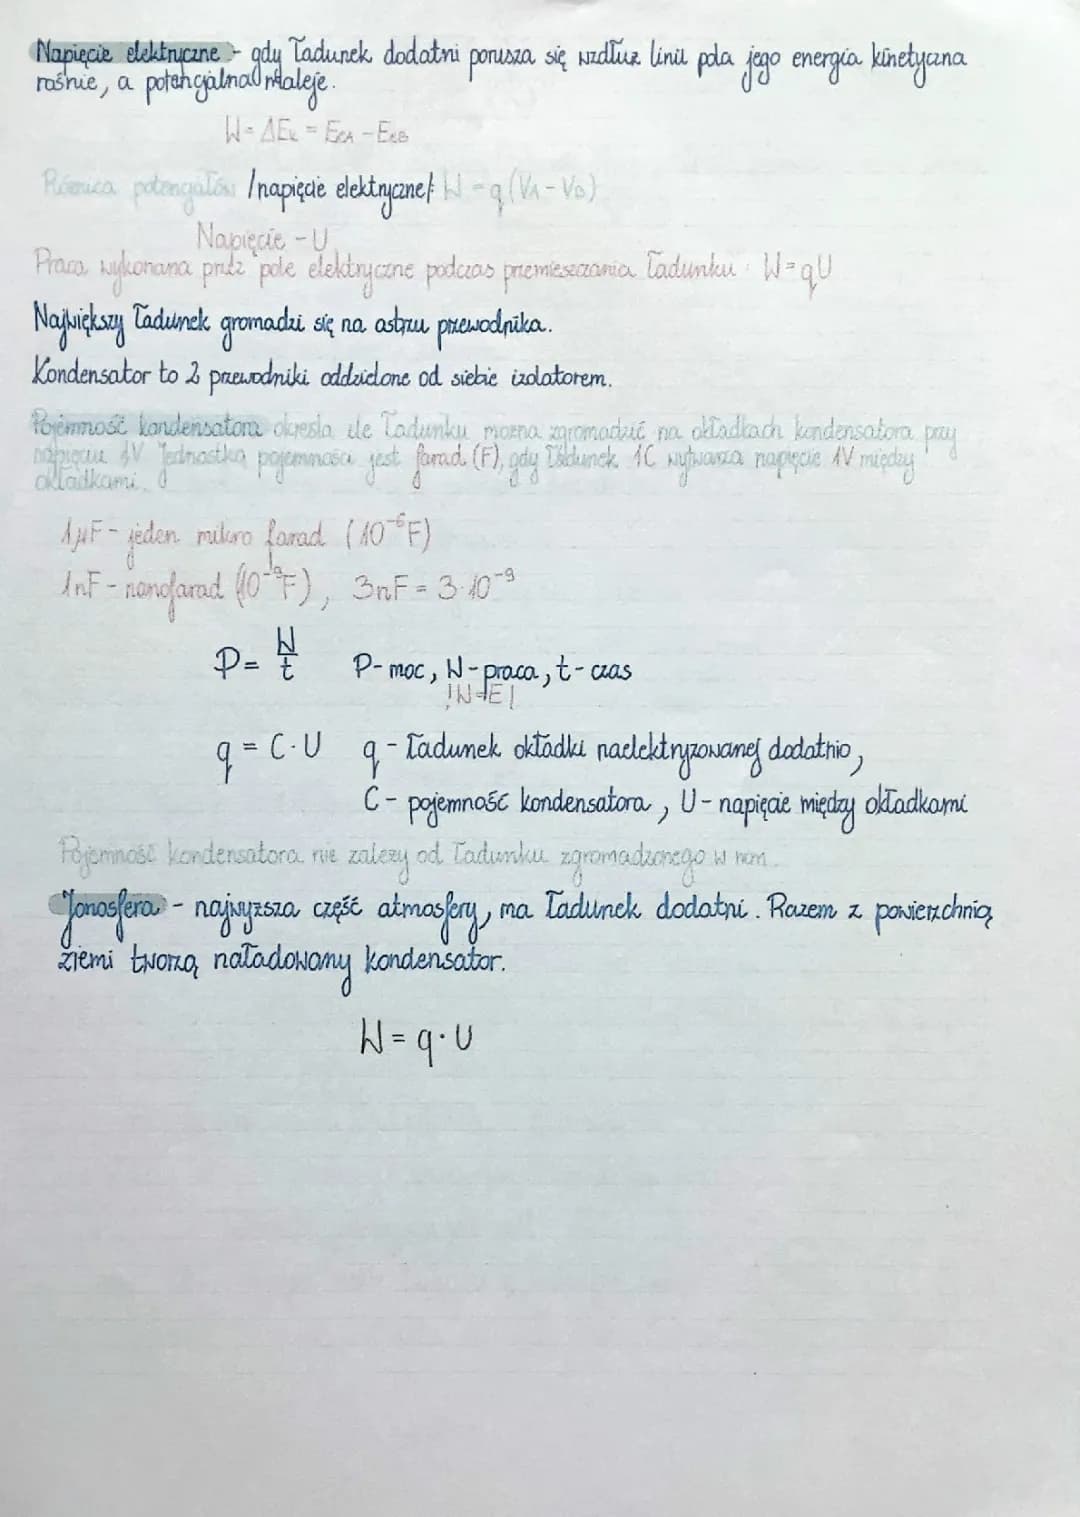 Napięcie elektryczne - gdy ładunek dodatni porusza się wzdłuż linii pola jego energia kinetyczna
rośnie, a potencjalna maleje.
W = ΔEk = EkA - EkB
Różnica potencjałów /napięcie elektryczne/: W = q (VA - VB)
Napięcie - U
Praca wykonana przez pole elektryczne podczas przemieszczania ładunku: W = qU
Największy ładunek gromadzi się na ostrzu przewodnika.
Kondensator to 2 przewodniki oddzielone od siebie izolatorem.
Pojemność kondensatora określa ile ładunku można zgromadzić na okładkach kondensatora przy
napięciu 1V. Jednostką pojemności jest farad (F), gdy ładunek 1C wytwarza napięcie 1V między
okładkami.
1μF - jeden mikro farad (10⁻⁶F)
1nF - nanofarad (10⁻⁹F), 3nF = 3·10⁻⁹
P = W/t P - moc, W - praca, t - czas
!W=E!
q = C·U q - ładunek okładki naelektryzowanej dodatnio,
C - pojemność kondensatora, U - napięcie między okładkami
Pojemność kondensatora nie zależy od ładunku zgromadzonego w nim.
Jonosfera - najwyższa część atmosfery, ma ładunek dodatni. Razem z powierzchnią
ziemi tworzą naładowany kondensator.
W = q·U